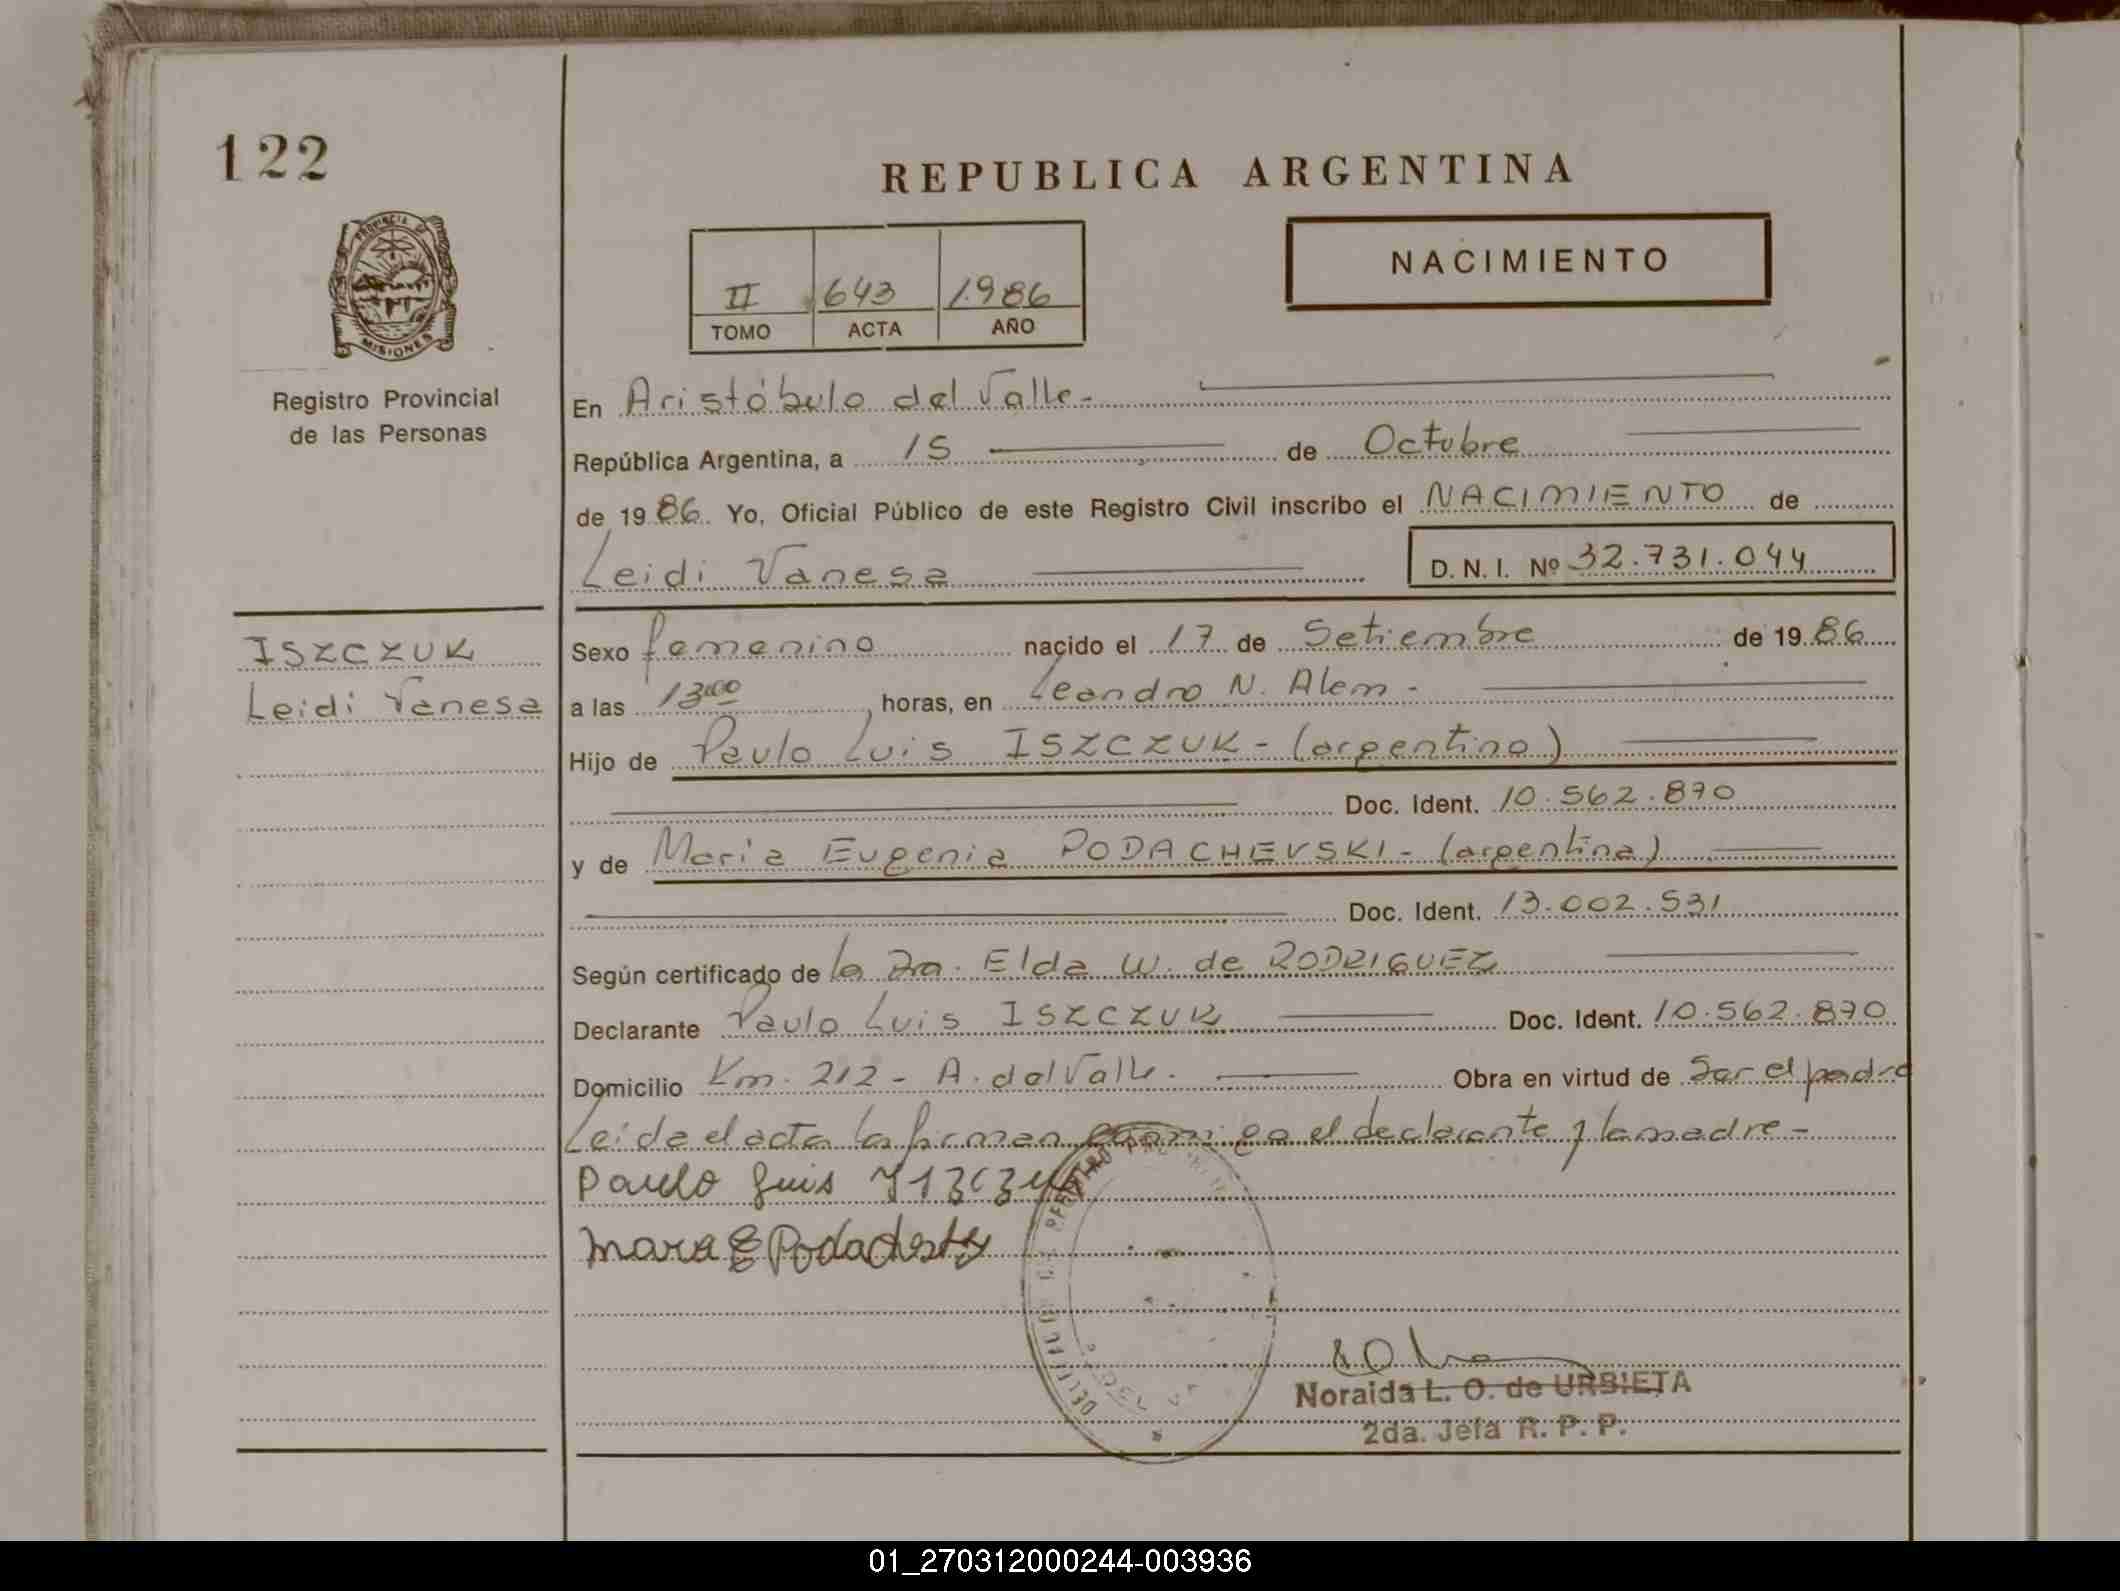 122
REPUBLICA ARGENTINA
NACIMIENTO
II 643 1.986
TOMO ACTA AÑO
PROVINCIA DE
MISIONES
Registro Provincial
de las Personas
En Aristóbulo del Valle-
República Argentina, a 15 de Octubre
de 1986. Yo, Oficial Público de este Registro Civil inscribo el NACIMIENTO de
Leidi Vanesa D.N.I. Nº 32.731.044
ISZCZUK
Leidi Vanesa
Sexo femenino nacido el 17 de Setiembre de 1986
a las 13,00 horas, en Leandro N. Alem-
Hijo de Paulo Luis ISZCZUK - (argentino)
Doc. Ident. 10.562.870
y de Maria Eugenia PODACHEVSKI - (argentina)
Doc. Ident. 13.002.531
Según certificado de la Dra. Elda W. de RODRIGUEZ
Declarante Paulo Luis ISZCZUK Doc. Ident. 10.562.870
Domicilio Km. 212 - A. del Valle. Obra en virtud de Ser el padre
Leida el acta la firman conmigo el declarante y la madre-
Paulo Luis
Maria E
Noraida L. O. de URBIETA
2da. Jefa R. P. P.
01_270312000244-003936